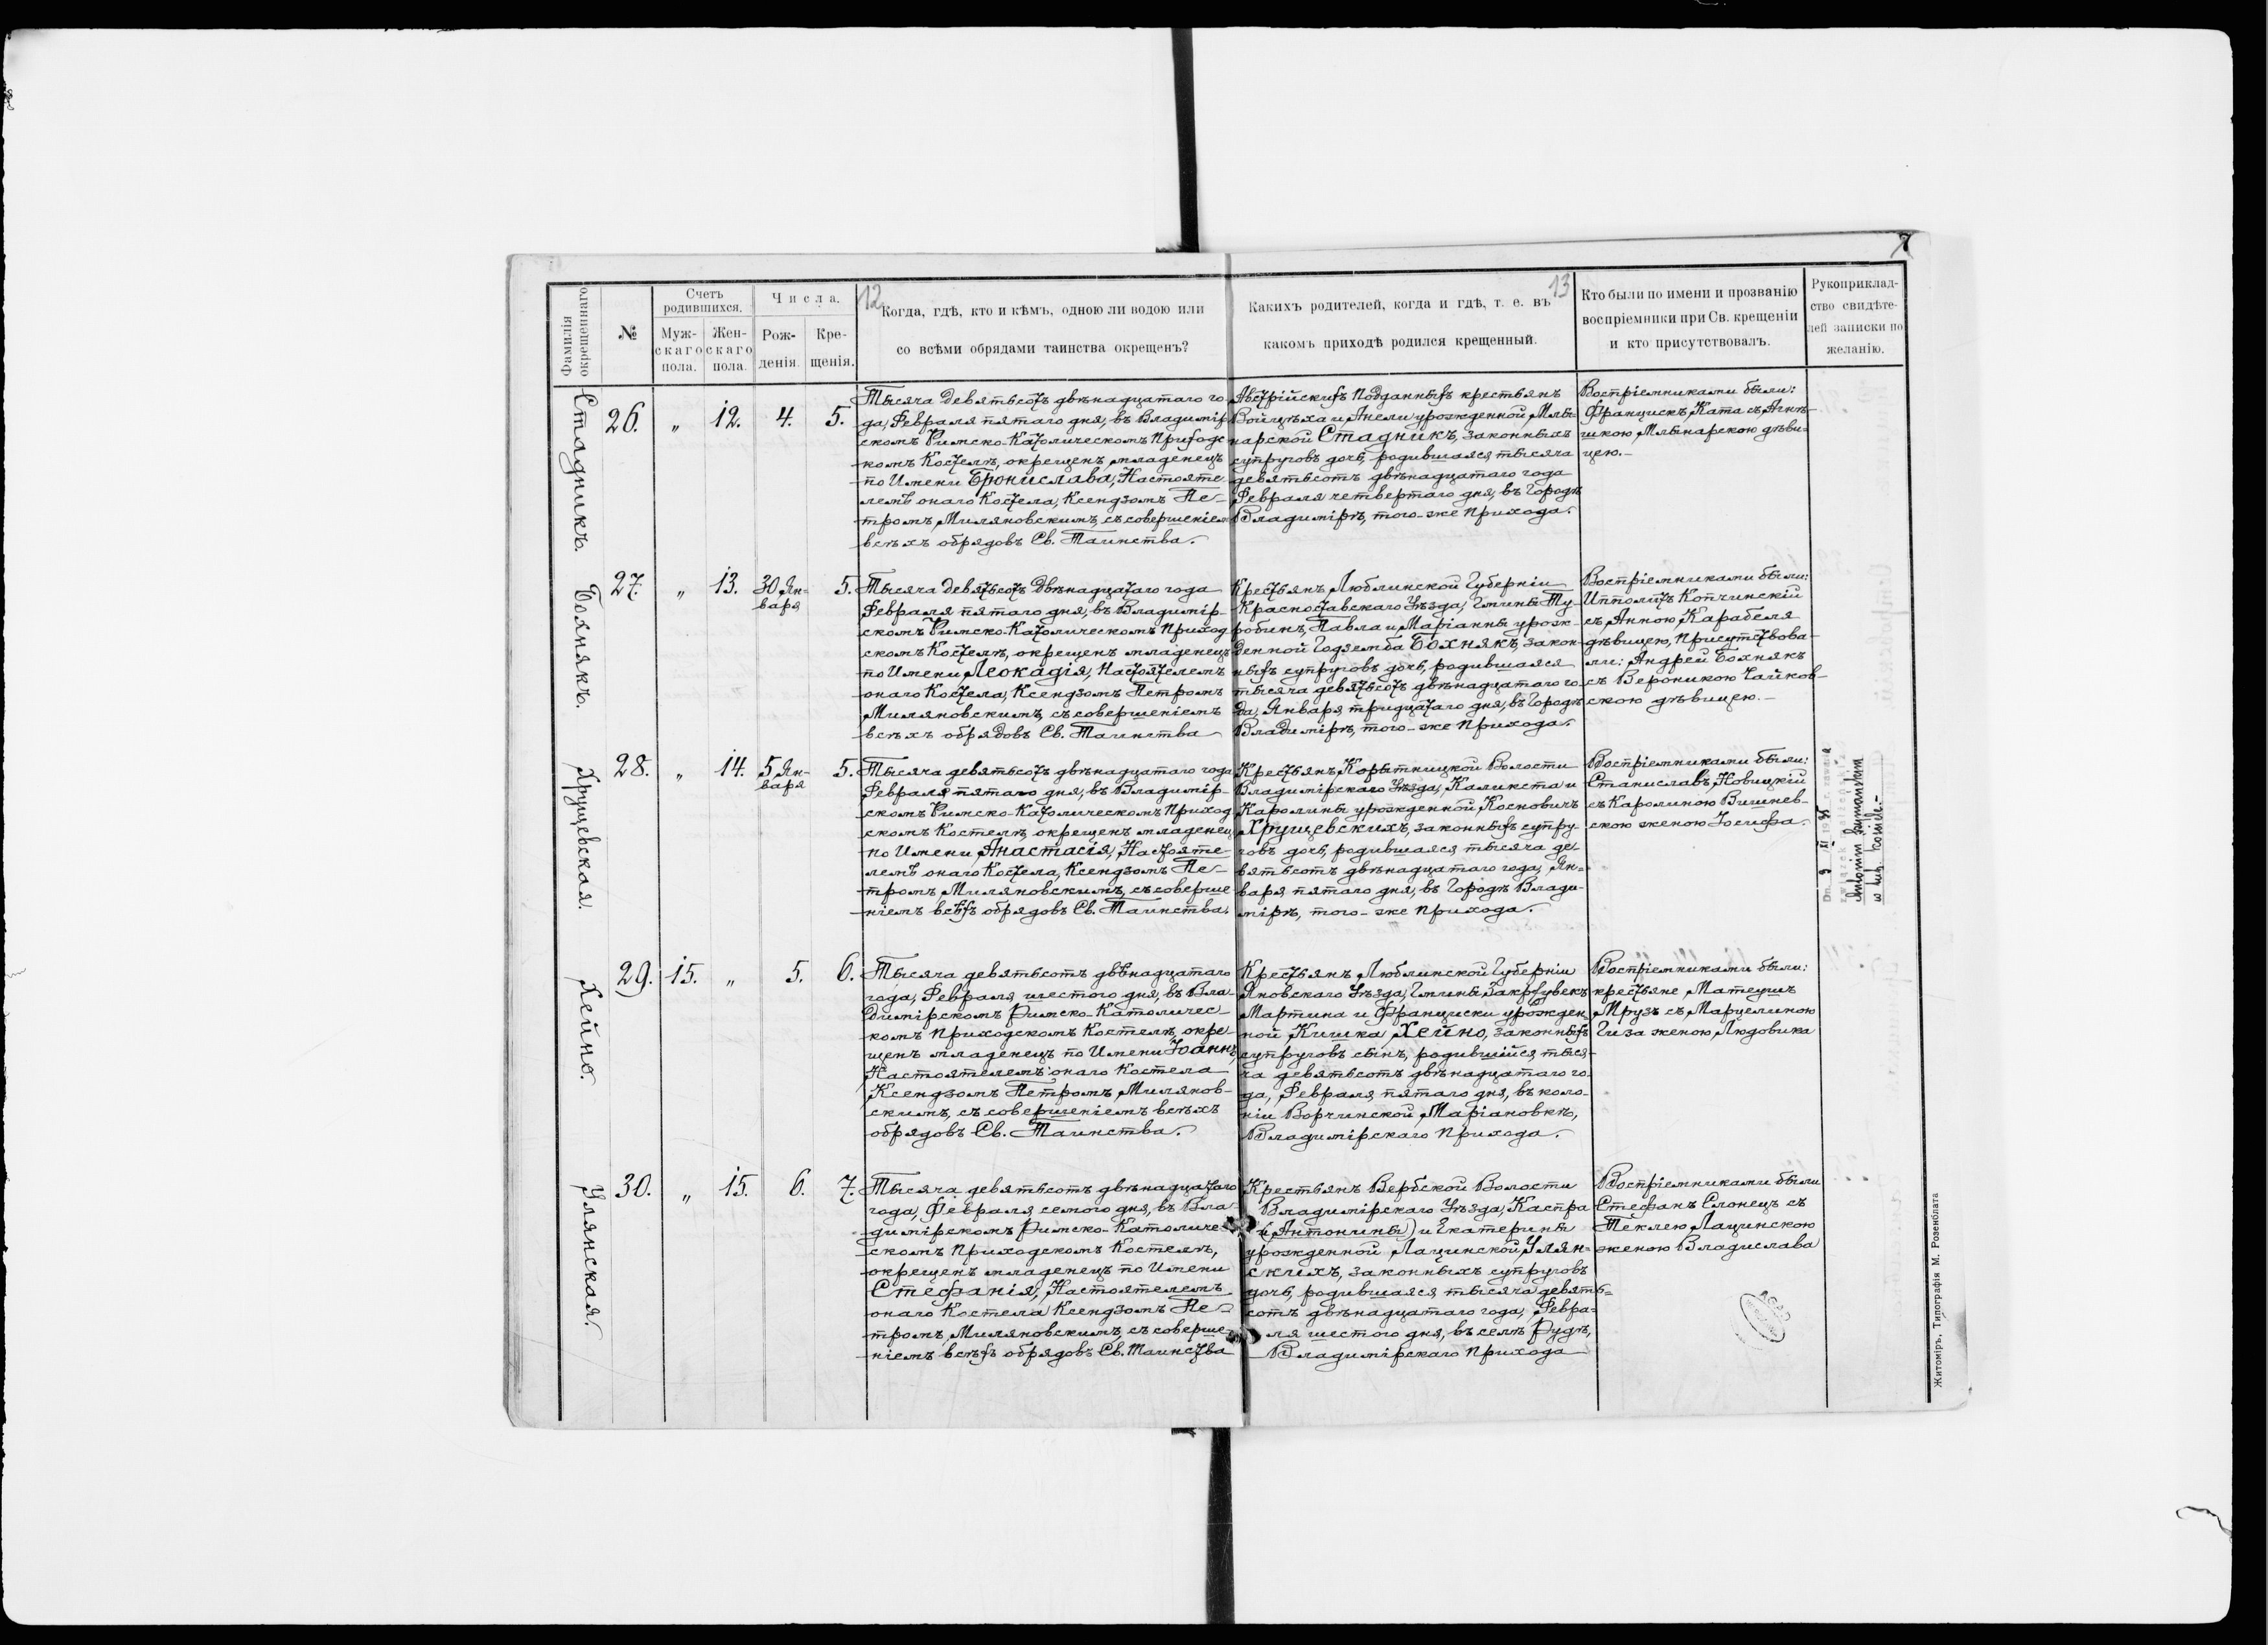 7
12
13
Фамилія окрѣщеннаго
№
Счетъ родившихся.
Муж-скаго пола.
Жен-скаго пола.
Числа.
Рож-денія.
Кре-щенія.
Когда, гдѣ, кто и кѣмъ, одною ли водою или
со всѣми обрядами таинства окрещенъ?
Какихъ родителей, когда и гдѣ, т. е. въ
какомъ приходѣ родился крещенный.
Кто были по имени и прозванію
воспріемники при Св. крещеніи
и кто присутствовалъ.
Рукоприклад-
ство свидѣте-
лей записки по
желанію.
Стадникъ.
26. „ 12. 4. 5.
Тысяча девятьсотъ двѣнадцатаго го-
да, Февраля пятаго дня, въ Владимір-
скомъ Римско-Католическомъ Приходс-
комъ Костелѣ, окрещенъ младенецъ
по Имени Бронислава, Настояте-
лемъ онаго Костела, Ксендзомъ Пе-
тромъ Миляновскимъ, съ совершеніемъ
всѣхъ обрядовъ Св. Таинства.
Австрійскихъ Подданныхъ крестьянъ
Войцѣха и Анели урожденной Млы-
нарской Стадникъ, законныхъ
супруговъ дочь, родившаяся тысяча
девятьсотъ двѣнадцатаго года
Февраля четвертаго дня, въ Городѣ
Владимірѣ, того-же Прихода.
Воспріемниками были:
Францискъ Ката съ Агнѣ-
шкою Млынарскою дѣви-
цею.-
Бохнякъ.
27. „ 13. 30 Ян-
варя 5.
Тысяча девятьсотъ Двѣнадцатаго года
Февраля пятаго дня, въ Владимір-
скомъ Римско-Католическомъ Приход-
скомъ Костелѣ, окрещенъ младенецъ
по Имени Леокадія, Настоятелемъ
онаго Костела, Ксендзомъ Петромъ
Миляновскимъ, съ совершеніемъ
всѣхъ обрядовъ Св. Таинства
Крестьянъ Люблинской Губерніи
Красноставскаго Уѣзда, Гмины Ту-
робинъ, Павла и Маріанны урож-
денной Годземба Бохнякъ, закон-
ныхъ супруговъ дочь, родившаяся
тысяча девятьсотъ двѣнадцатаго го-
да, Января тридцатаго дня, въ Городѣ
Владимірѣ, того-же Прихода.
Воспріемниками были:
Ипполитъ Копчинскій
съ Анною Карабеля
дѣвицею, Присутствова-
ли: Андрей Бохнякъ
съ Вероникою Чайков-
скою дѣвицею.-
Хрущевская.
28. „ 14. 5 Ян-
варя 5.
Тысяча девятьсотъ двѣнадцатаго года
Февраля пятаго дня, въ Владимір-
скомъ Римско-Католическомъ Приход
скомъ Костелѣ, окрещенъ младенец
по Имени Анастасія, Настояте-
лемъ онаго Костела, Ксендзомъ Пе-
тромъ Миляновскимъ, съ соверше-
ніемъ всѣхъ обрядовъ Св. Таинства.
Крестьянъ Корытницкой Волости
Владимірскаго Уѣзда, Каликста и
Каролины урожденной Косновичъ
Хрущевскихъ, законныхъ супру-
говъ дочь, родившаяся тысяча де-
вятьсотъ двѣнадцатаго года, Ян-
варя пятаго дня, въ Городѣ Влади-
мірѣ, того-же Прихода.
Воспріемниками были:
Станиславъ Новицкій
съ Каролиною Вишнев-
скою женою Іосифа.
Dn. 9 / XI 1935 r. zawarła
związek małżeński
Antonim Szymańskim
w tut. kościele.-
Хейно.
29. 15. „ 5. 6.
Тысяча девятьсотъ двѣнадцатаго
года, Февраля, шестого дня, въ Вла-
димірскомъ Римско-Католичес-
комъ Приходскомъ Костелѣ, окре-
щенъ младенецъ по Имени Іоаннъ,
Настоятелемъ онаго Костела
Ксендзомъ Петромъ Милянов-
скимъ, съ совершеніемъ всѣхъ
обрядовъ Св. Таинства.
Крестьянъ Люблинской Губерніи
Яновскаго Уѣзда, Гмины Закржувекъ
Мартина и Франциски урожден-
ной Кишка Хейно, законныхъ
супруговъ сынъ, родившійся тыся-
ча девятьсотъ двѣнадцатаго го-
да, Февраля, пятаго дня, въ коло-
ніи Ворчинской Маріановкѣ,
Владимірскаго Прихода.
Воспріемниками были:
крестьяне Матеушъ
Мрузъ съ Марцелиною
Гиза женою Людовика
Улянская.
30. „ 15. 6. 7.
Тысяча девятьсотъ двѣнадцатаго
года, Февраля семого дня, въ Вла-
димірскомъ Римско-Католиче-
скомъ Приходскомъ Костелѣ,
окрещенъ младенецъ по Имени
Стефанія, Настоятелемъ
онаго Костела Ксендзомъ Пе-
тромъ Миляновскимъ, съ соверше-
ніемъ всѣхъ обрядовъ Св. Таинства
Крестьянъ Вербской Волости
Владимірскаго Уѣзда, Каспра
(Антонины) и Екатерины
урожденной Лащинской Улян-
скихъ, законныхъ супруговъ
дочь, родившаяся тысяча девять-
сотъ двѣнадцатаго года, Февра-
ля шестого дня, въ селѣ Рудѣ,
Владимірскаго Прихода
Воспріемниками были
Стефанъ Слонецъ съ
Теклею Лащинскою
женою Владислава
AGAD
Житоміръ, Типографія М. Розенблата